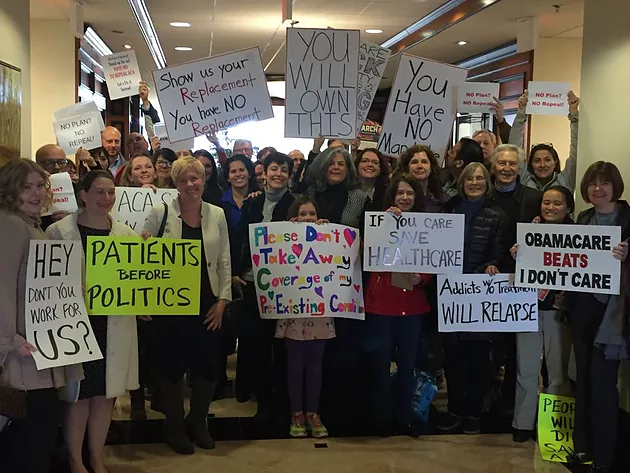 VOTE NO
to REPEAL ACA
Show us your
Replacement
You have NO
Replacement
YOU
WILL
OWN
THIS
You
Have
NO
NO Plan?
No Repeal!
NO Plan?
No Repeal!
NO PLAN?
NO REPEAL!
NO
ACA'S
HEY
DON'T YOU
WORK FOR
US?
PATIENTS
BEFORE
POLITICS
Please Don't
Take Away
Coverage of my
Pre-Existing
IF YOU CARE
SAVE
HEALTHCARE
Addicts w/o Treatment
WILL RELAPSE
OBAMACARE
BEATS
I DON'T CARE